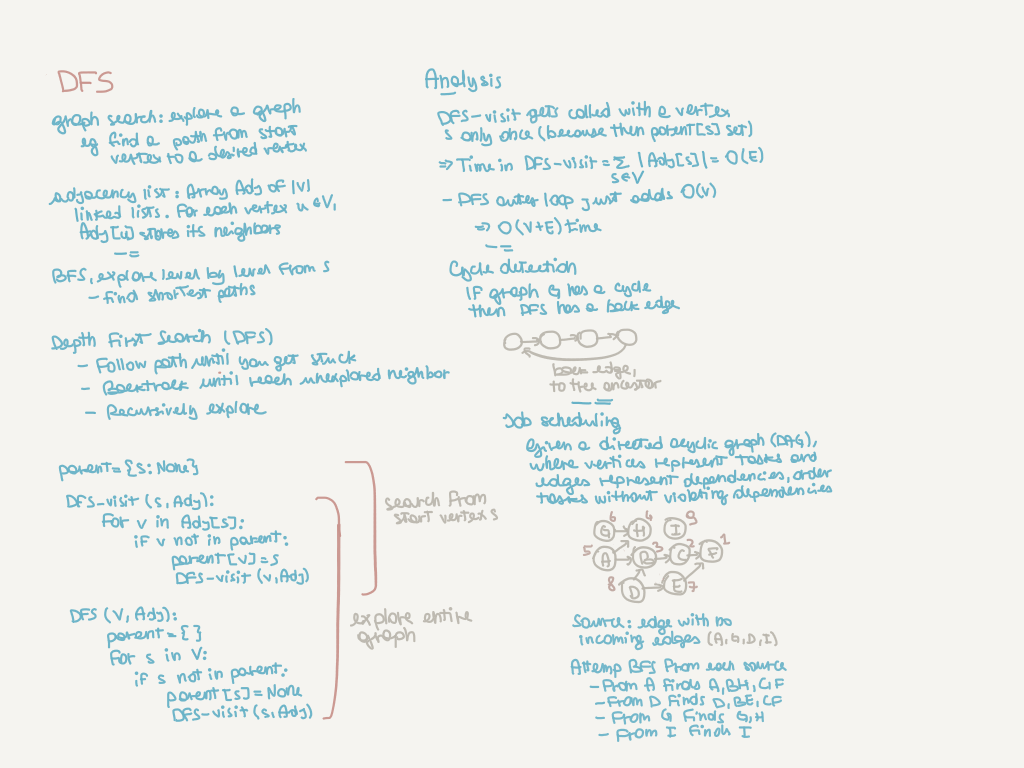 DFS
graph search: explore a graph
eg find a path from start
vertex to a desired vertex
adjacency list: Array Adj of |V|
linked lists. For each vertex u ∈ V,
Adj[u] stores its neighbors
BFS, explore level by level from S
- find shortest paths
Depth First Search (DFS)
- Follow path until you get stuck
- Backtrack until reach unexplored neighbor
- Recursively explore
parent = {s: None}
DFS-visit (s, Adj):
For v in Adj[s]:
if v not in parent:
parent[v] = s
DFS-visit (v, Adj)
search from
start vertex s
DFS (V, Adj):
parent = { }
For s in V:
if s not in parent:
parent[s] = None
DFS-visit (s, Adj)
explore entire
graph
Analysis
DFS-visit gets called with a vertex
s only once (because then parent[s] set)
=> Time in DFS-visit = Σ |Adj[s]| = O(E)
s∈V
- DFS outer loop just adds O(V)
=> O(V+E) time
Cycle detection
IF graph G has a cycle
then DFS has a back edge
back edge,
to tree ancestor
Job scheduling
Given a directed acyclic graph (DAG),
where vertices represent tasks and
edges represent dependencies, order
tasks without violating dependencies
6 4 9
G H I
5 3 2 1
A B C F
8 D E 7
Source: edge with no
incoming edges (A, G, D, I)
Attemp BFS From each source
- From A Finds A, BH, C, F
- From D Finds D, BE, CF
- From G Finds G, H
- From I Finds I